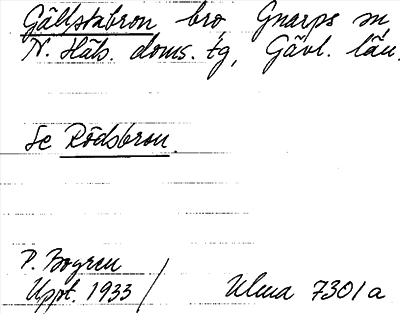 Gällstabron bro Gnarps sn,
N. Häls. doms. tg, Gävl. län.
Se Rödsbron.
P. Bogren
Uppt. 1933 / Ulma 7301a